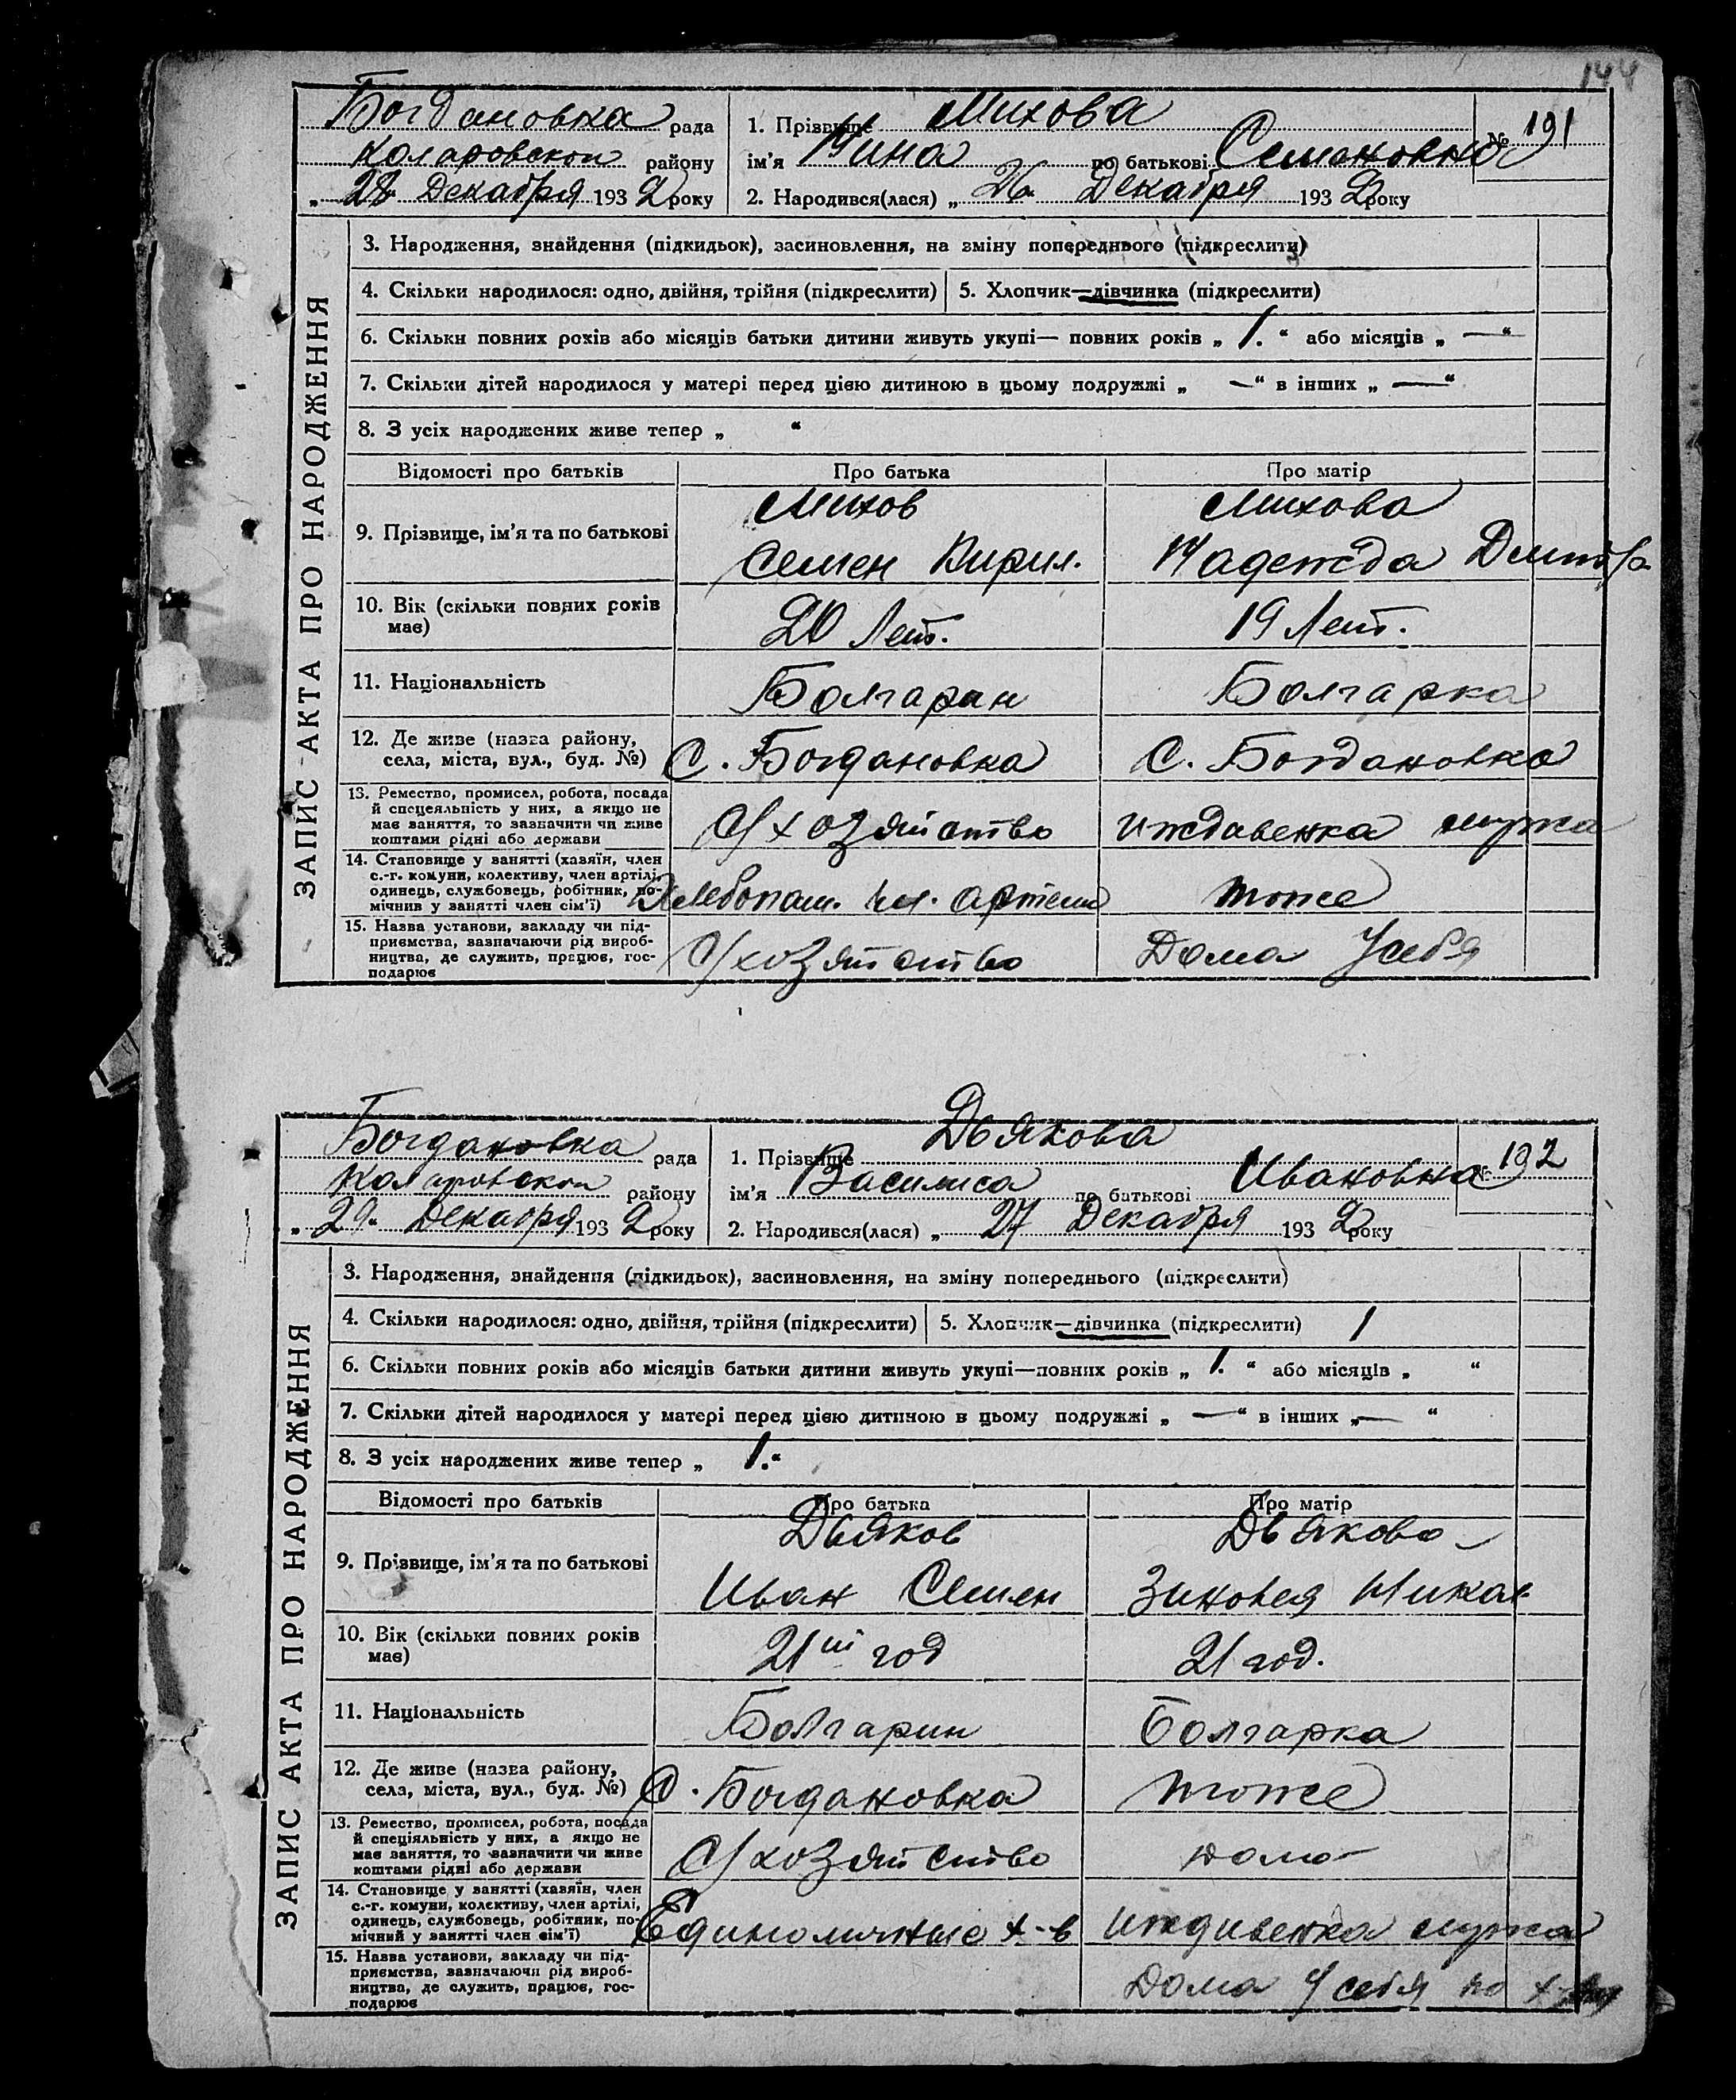 144
Богдановка рада
Коларовской району
„ 28 Декабря 1932 року
1. Прізвище Михова
ім'я Нина по батькові Семеновна
2. Народився(лася) „ 26 Декабря 1932 року
№ 191
ЗАПИС АКТА ПРО НАРОДЖЕННЯ
3. Народження, знайдення (підкидьок), засиновлення, на зміну попереднього (підкреслити)
4. Скільки народилося: одно, двійня, трійня (підкреслити) 5. Хлопчик—дівчинка (підкреслити)
6. Скільки повних років або місяців батьки дитини живуть укупі— повних років „ 1. “ або місяців „ — “
7. Скільки дітей народилося у матері перед цією дитиною в цьому подружжі „ — “ в інших „ — “
8. З усіх народжених живе тепер „ “
Відомості про батьків Про батька Про матір
9. Прізвище, ім'я та по батькові
Михов
Семен Кирил.
Михова
Надежда Дмитр.
10. Вік (скільки повних років
має)
20 Лет. 19 Лет.
11. Національність Болгарин Болгарка
12. Де живе (назва району,
села, міста, вул., буд. №)
С. Богдановка С. Богдановка
13. Ремество, промисел, робота, посада
й спецеяльність у них, а якщо не
має заняття, то зазначити чи живе
коштами рідні або держави
С/хозяйство иждавенка мужа
14. Становище у занятті (хазяїн, член
с.-г. комуни, колективу, член артілі,
одинець, службовець, робітник, по-
мічнив у занятті член сім'ї)
Хлебопаш. чл. артели тоже
15. Назва установи, закладу чи під-
приємства, зазначаючи рід вироб-
ництва, де служить, працює, гос-
подарює
С/хозяйство Дома Усебя
Богдановка рада
Коларовской району
„ 29 Декабря 1932 року
1. Прізвище Дьякова
ім'я Василиса по батькові Ивановна
2. Народився(лася) „ 27 Декабря 1932 року
№ 192
ЗАПИС АКТА ПРО НАРОДЖЕННЯ
3. Народження, знайдення (підкидьок), засиновлення, на зміну попереднього (підкреслити)
4. Скільки народилося: одно, двійня, трійня (підкреслити) 5. Хлопчик—дівчинка (підкреслити) 1
6. Скільки повних років або місяців батьки дитини живуть укупі—повних років „ 1. “ або місяців „ “
7. Скільки дітей народилося у матері перед цією дитиною в цьому подружжі „ — “ в інших „ — “
8. З усіх народжених живе тепер „ 1. “
Відомості про батьків Про батька Про матір
9. Прізвище, ім'я та по батькові
Дьяков
Иван Семен
Дьякова
Зиновея Никол
10. Вік (скільки повних років
має)
21ий год 21 год.
11. Національність Болгарин Болгарка
12. Де живе (назва району,
села, міста, вул., буд. №)
С. Богдановка тоже
13. Ремество, промисел, робота, посада
й спеціяльність у них, а якщо не
має заняття, то зазначити чи живе
коштами рідні або держави
С/хозяйство дома
14. Становище у занятті (хазяїн, член
с.-г. комуни, колективу, член артілі,
одинець, службовець, робітник, по-
мічний у занятті член сім'ї)
Единоличные х-в иждивенка мужа
15. Назва установи, закладу чи під-
приємства, зазначаючи рід вироб-
ництва, де служить, працює, гос-
подарює
Дома у себя по